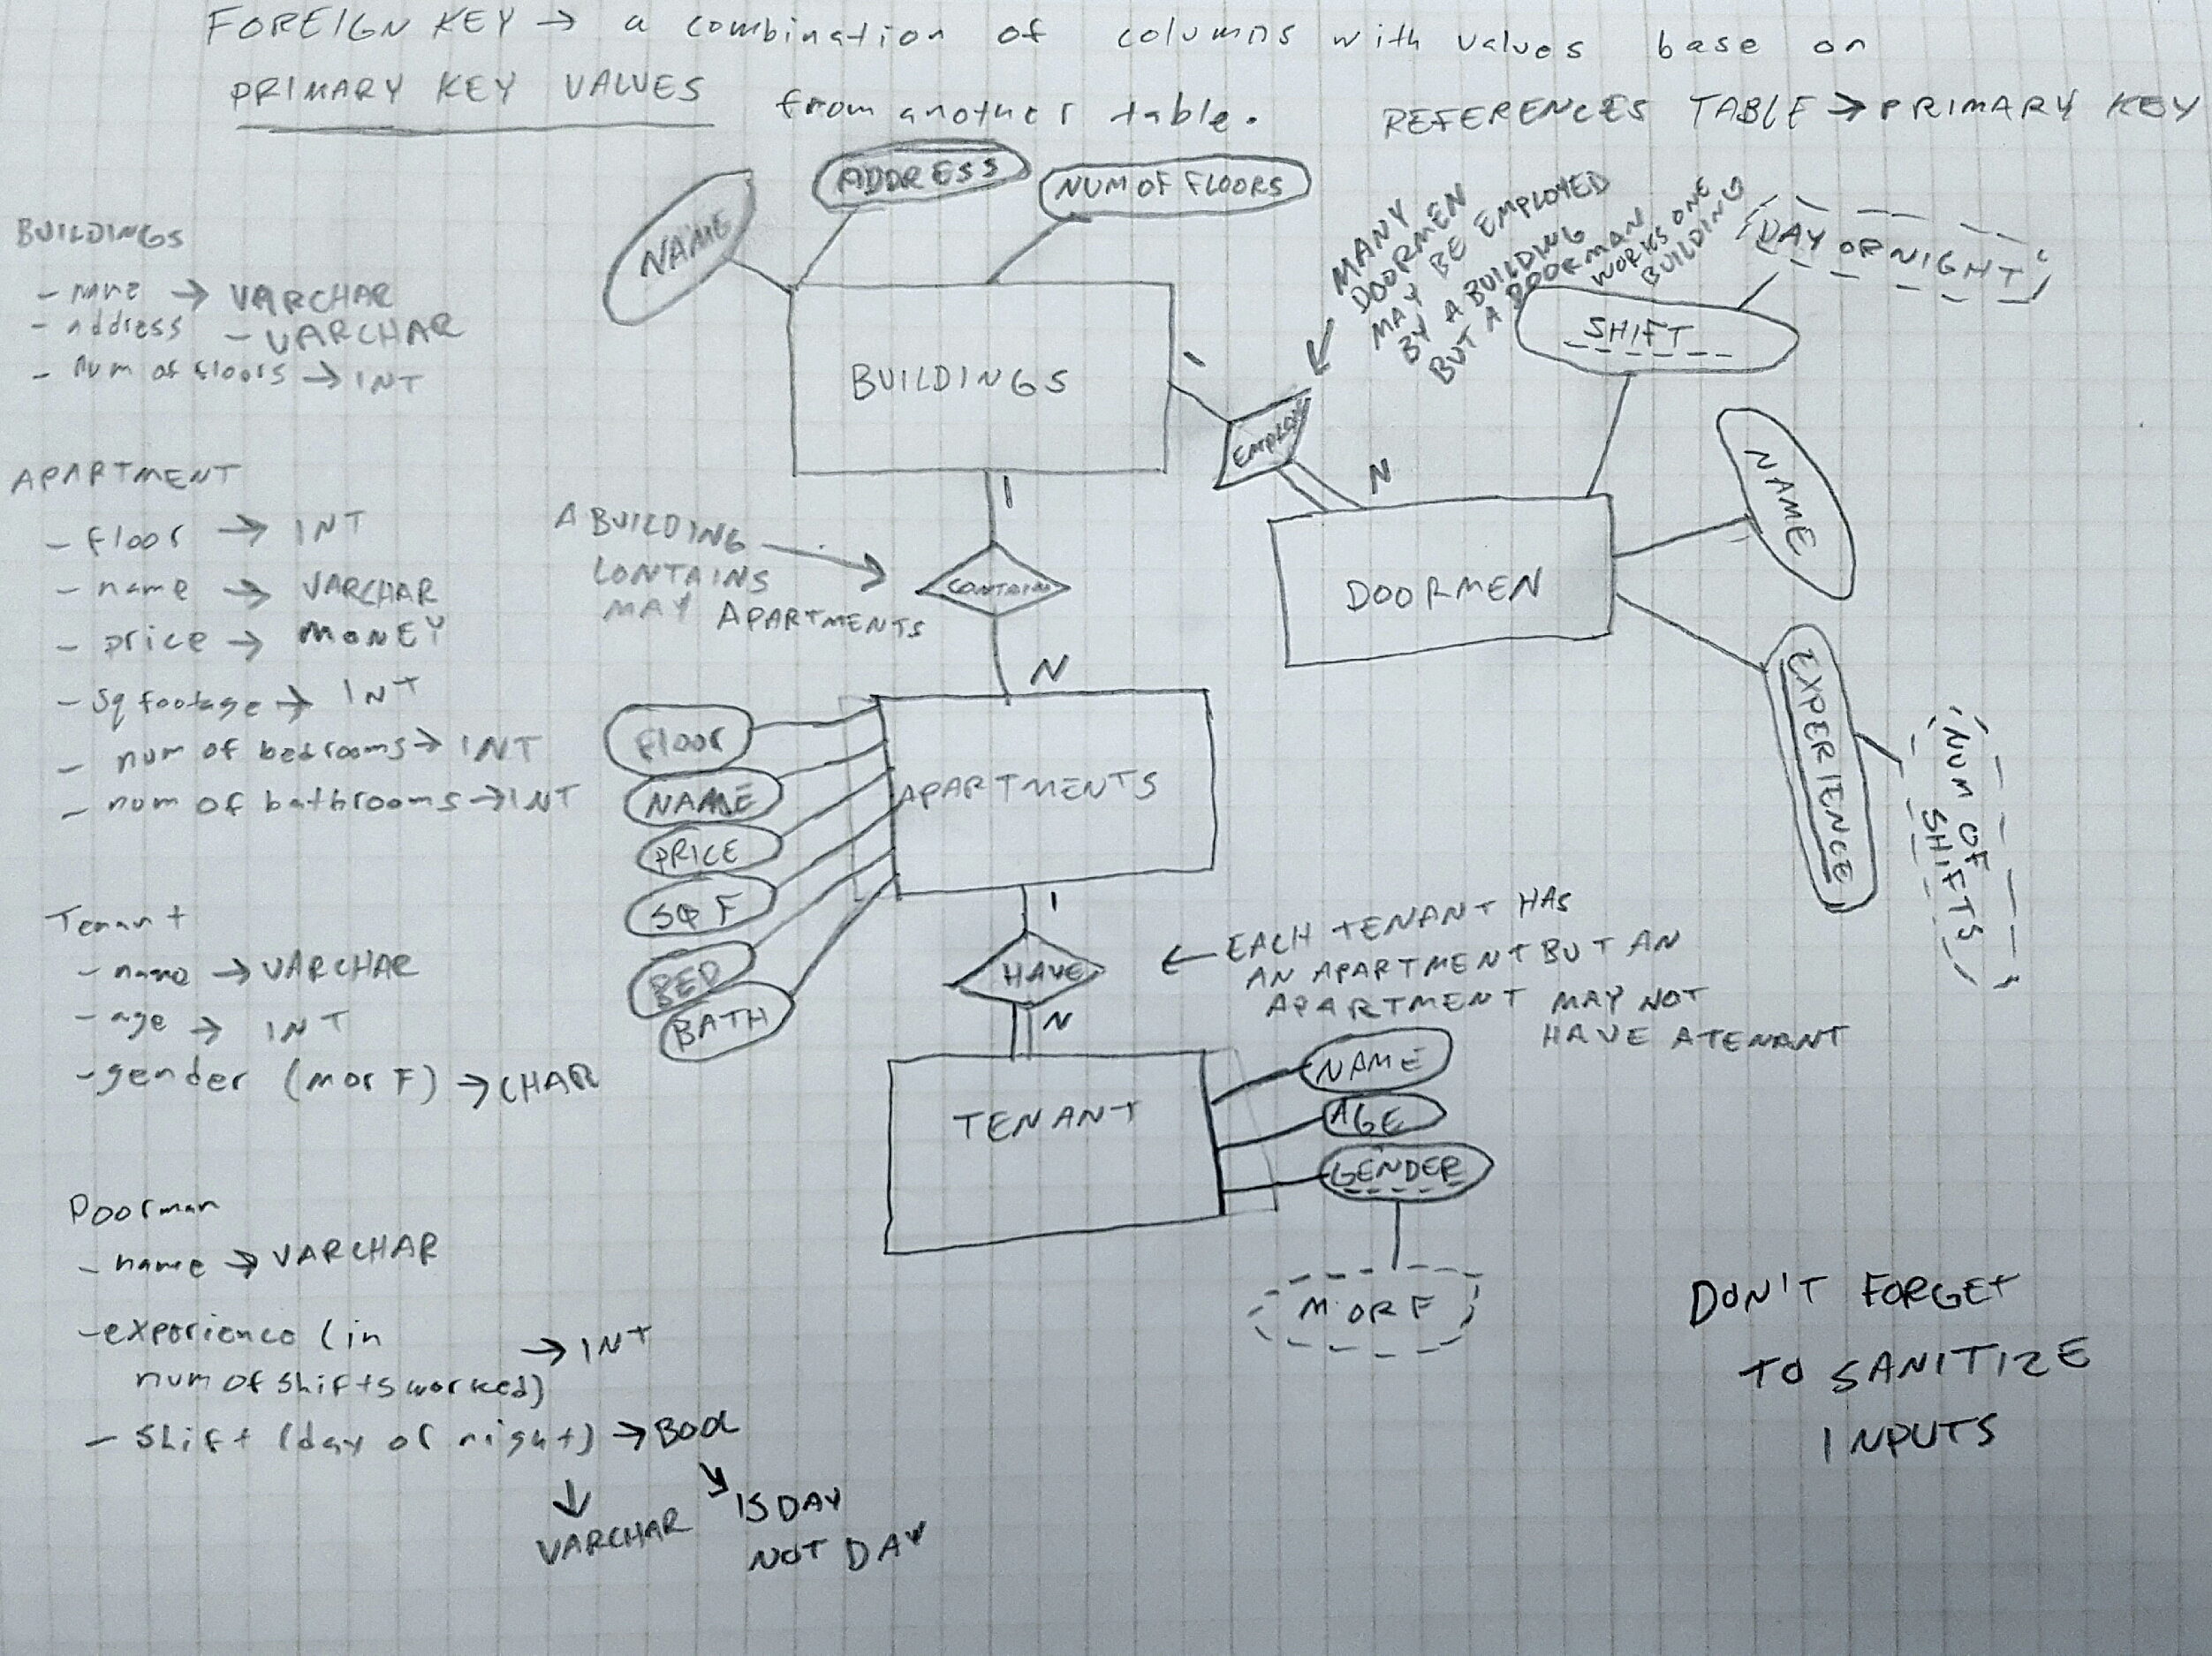 FOREIGN KEY → a combination of columns with values base on
PRIMARY KEY VALUES from another table. REFERENCES TABLE → PRIMARY KEY
BUILDINGS
- name → VARCHAR
- address - VARCHAR
- Num of floors → INT
APARTMENT
- floor → INT
- name → VARCHAR
- price → MONEY
- sq footage → INT
- num of bedrooms → INT
- num of bathrooms → INT
Tenant
- name → VARCHAR
- age → INT
- gender (m or F) → CHAR
Doorman
- name → VARCHAR
- experience (in
num of shifts worked) → INT
- shift (day or night) → BOOL
↓
VARCHAR
↘ IS DAY
NOT DAY
NAME
ADDRESS
NUM OF FLOORS
BUILDINGS
1
EMPLOY
N
MANY
DOORMEN
MAY BE EMPLOYED
BY A BUILDING
BUT A DOORMAN
WORKS ONE
BUILDING
DAY OR NIGHT
SHIFT
NAME
DOORMEN
EXPERIENCE
NUM OF
SHIFTS
1
A BUILDING
CONTAINS
MAY APARTMENTS
CONTAIN
N
FLOOR
NAME
PRICE
SQ F
BED
BATH
APARTMENTS
1
HAVE
N
← EACH TENANT HAS
AN APARTMENT BUT AN
APARTMENT MAY NOT
HAVE A TENANT
TENANT
NAME
AGE
GENDER
M OR F
DON'T FORGET
TO SANITIZE
INPUTS